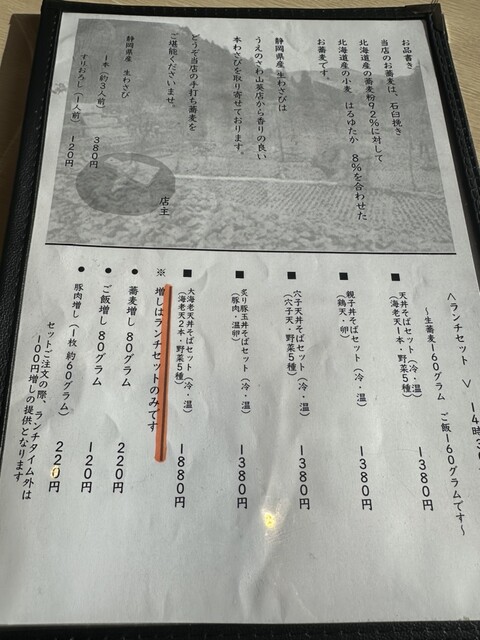 お品書き
当店のお蕎麦は、石臼挽き
北海道産の蕎麦粉92%に対して
北海道産の小麦 はるゆたか 8%を合わせた
お蕎麦です。
静岡県産 生わさびは
うえのさわ山葵店から香りの良い
本わさびを取り寄せております。
どうぞ当店の手打ち蕎麦を
ご堪能くださいませ。
店主
静岡県産 生わさび
1本(約3人前) 380円
すりおろし(1人前) 120円
<ランチセット> 14時
~生蕎麦160グラム ご飯160グラムです~
■ 天丼そばセット(冷・温) 1380円
(海老天1本・野菜5種)
■ 親子丼そばセット(冷・温) 1380円
(鶏天・卵)
■ 穴子天丼そばセット(冷・温) 1380円
(穴子天・野菜5種)
■ 炙り豚玉丼そばセット(冷・温) 1380円
(豚肉・温卵)
■ 大海老天丼そばセット(冷・温) 1880円
(海老天2本・野菜5種)
※ 増しはランチセットのみです
● 蕎麦増し80グラム 220円
● ご飯増し80グラム 120円
● 豚肉増し(1枚 約60グラム) 220円
セットご注文の際、ランチタイム外は
100円増しの提供となります